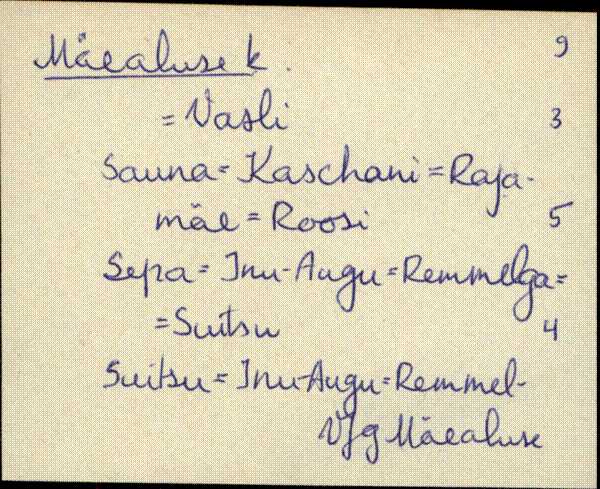 Mäealuse k. 9
= Vasli 3
Sauna = Kaschani = Raja-
mäe = Roosi 5
Sepa = Inu-Augu = Remmelga =
= Suitsu 4
Suitsu = Inu-Augu = Remmel-
Vfg Mäealuse